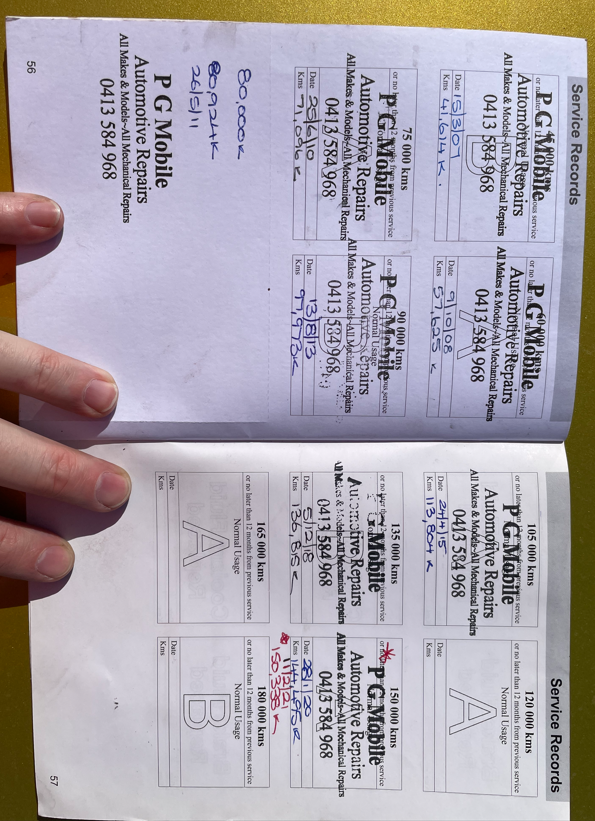 Service Records
45 000 kms
or no later than 12 months from previous service
P G Mobile
Automotive Repairs
All Makes & Models~All Mechanical Repairs
0413 584 968
Date 15/3/07
Kms 41,614 K.
60 000 kms
or no later than 12 months from previous service
P G Mobile
Automotive Repairs
All Makes & Models~All Mechanical Repairs
0413 584 968
Date 9/10/08
Kms 57,625 K
75 000 kms
or no later than 12 months from previous service
P G Mobile
Automotive Repairs
All Makes & Models~All Mechanical Repairs
0413 584 968
Date 25/6/10
Kms 71,096 K
90 000 kms
or no later than 12 months from previous service
Normal Usage
P G Mobile
Automotive Repairs
All Makes & Models~All Mechanical Repairs
0413 584 968
Date 13/8/13
Kms 97,973K
80,000K
80924K
26/5/11
P G Mobile
Automotive Repairs
All Makes & Models~All Mechanical Repairs
0413 584 968
56
Service Records
105 000 kms
or no later than 12 months from previous service
P G Mobile
Automotive Repairs
All Makes & Models~All Mechanical Repairs
0413 584 968
Date 24/4/15
Kms 113,804 K
120 000 kms
or no later than 12 months from previous service
Normal Usage
A
Date
Kms
135 000 kms
or no later than 12 months from previous service
P G Mobile
Automotive Repairs
All Makes & Models~All Mechanical Repairs
0413 584 968
Date 5/12/18
Kms 136,815 K
150 000 kms
P G Mobile
Automotive Repairs
All Makes & Models~All Mechanical Repairs
0413 584 968
Date 28/1/20
Kms 144,695K
11/2/21
150338K
165 000 kms
or no later than 12 months from previous service
Normal Usage
A
Date
Kms
180 000 kms
or no later than 12 months from previous service
Normal Usage
B
Date
Kms
57